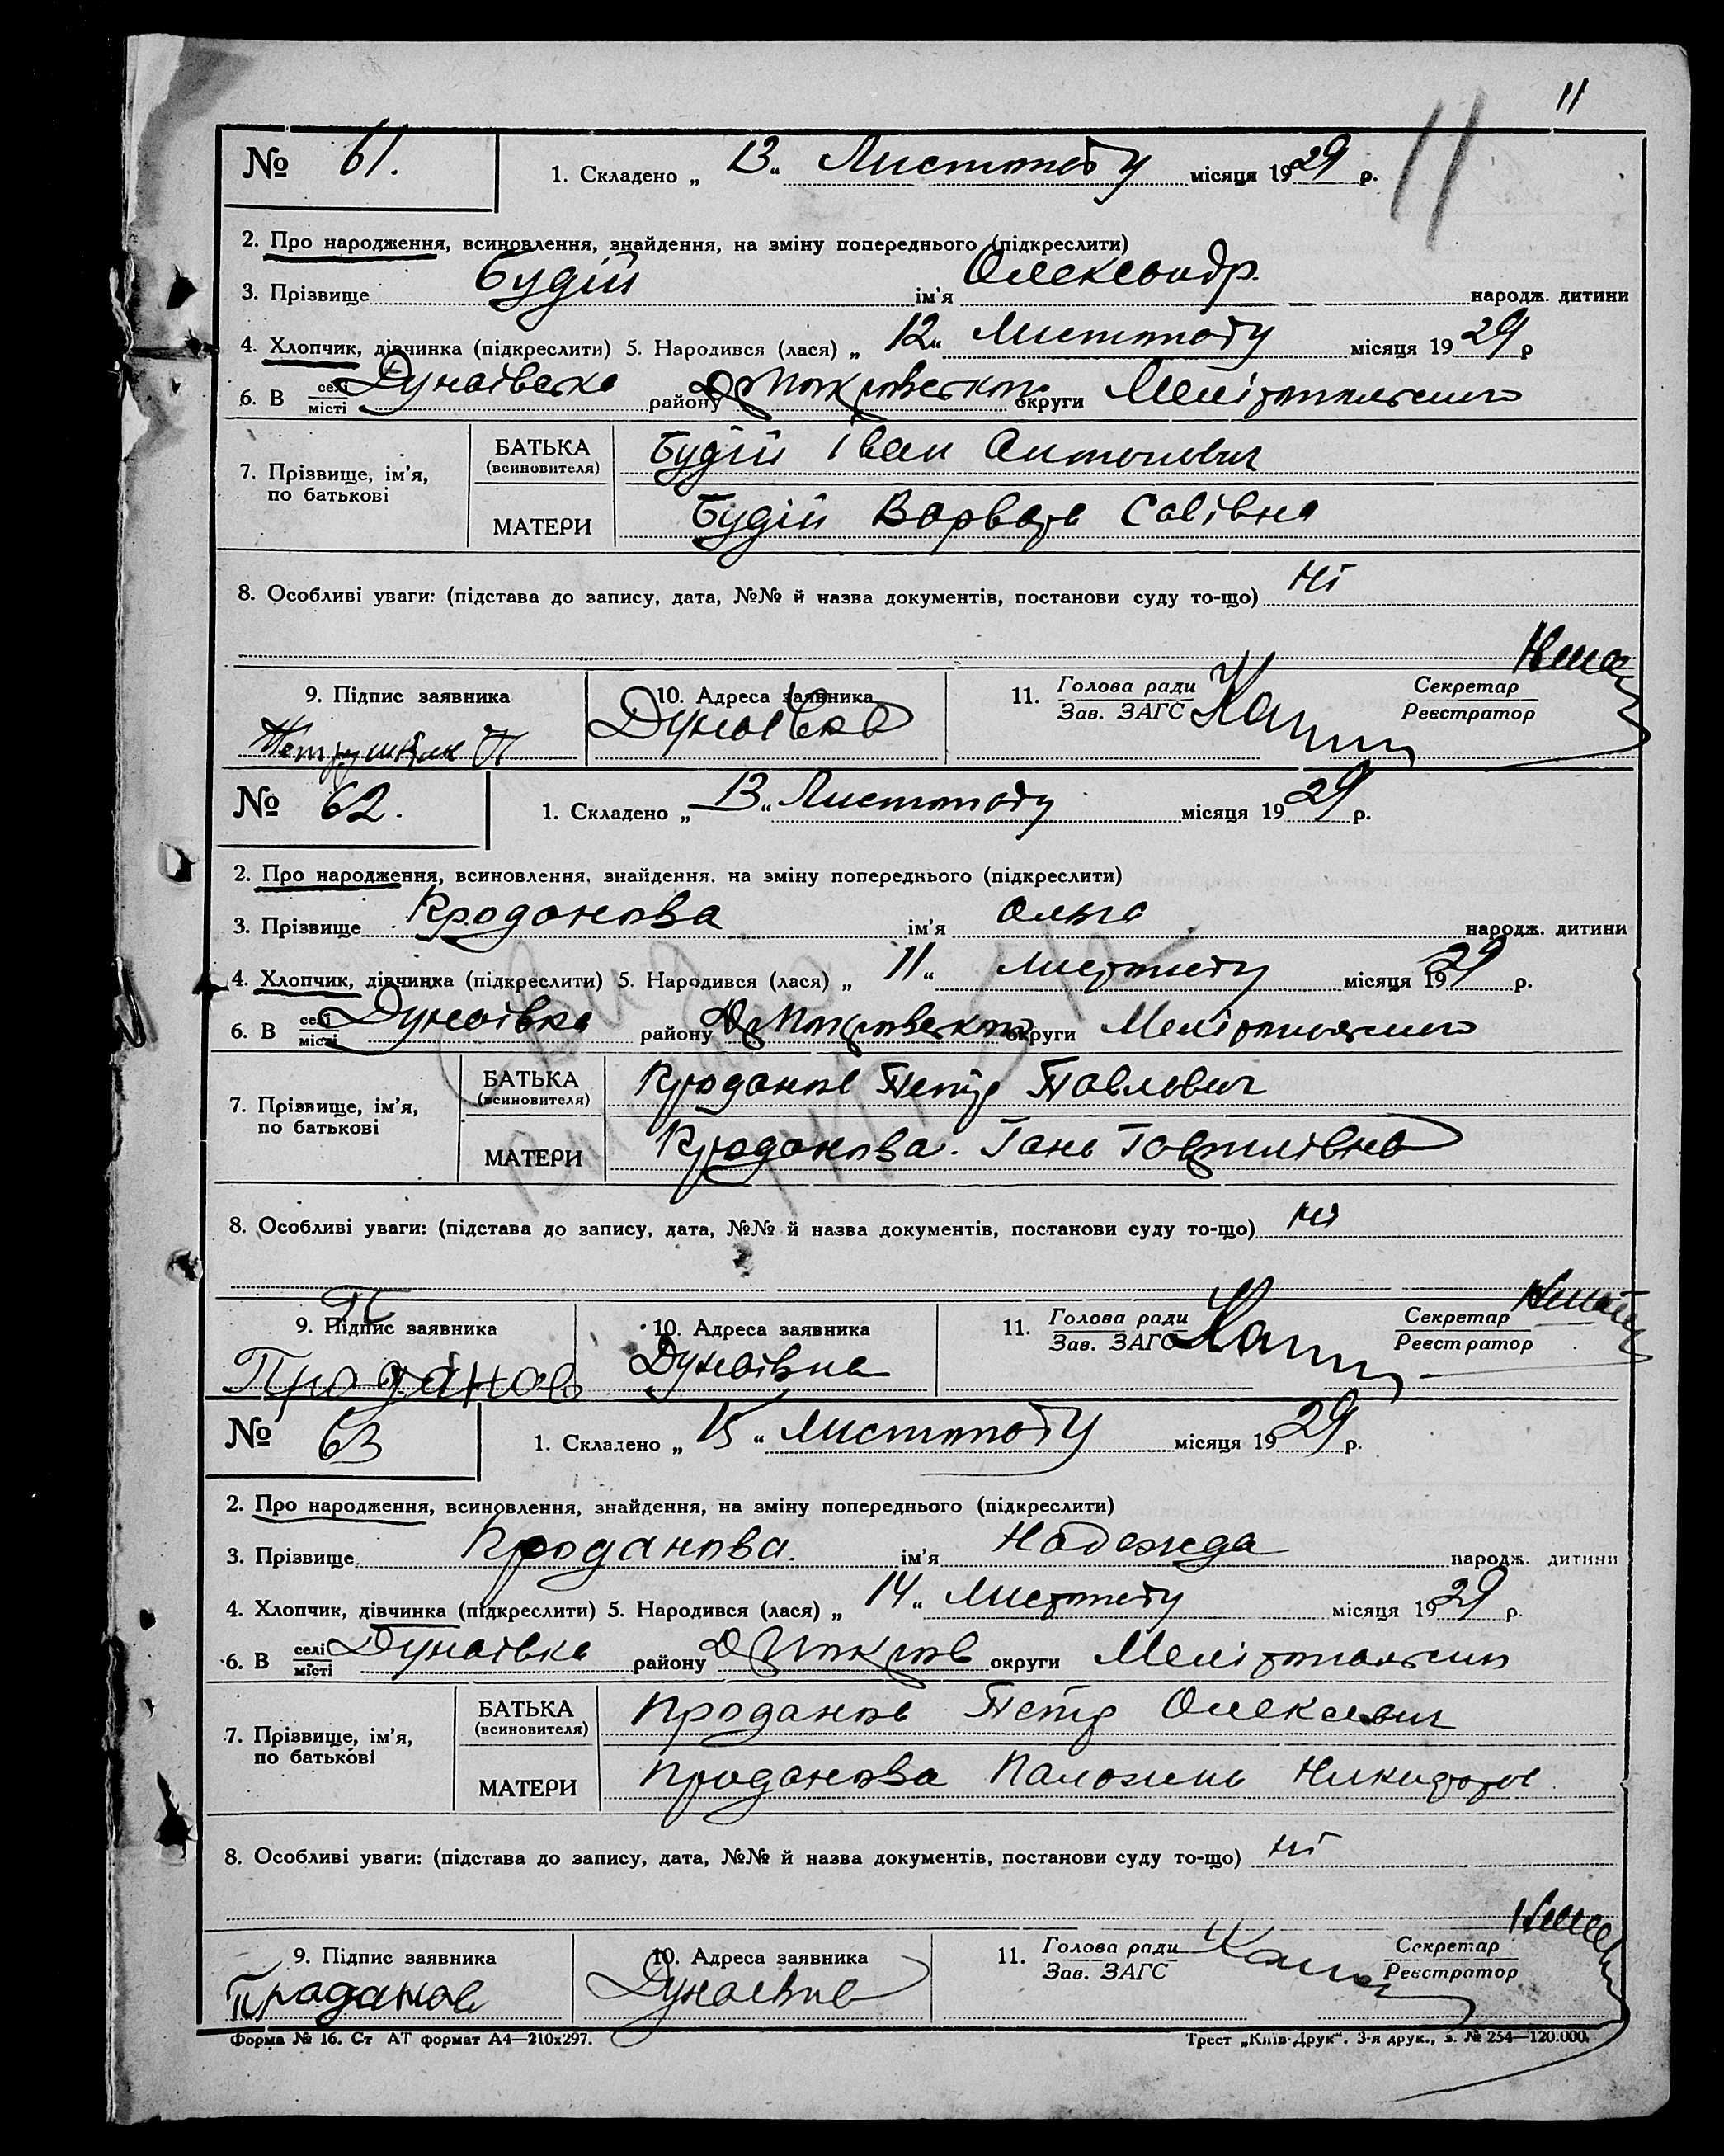 11
11
№ 61.
1. Складено „ 13 “ Листопаду місяця 1929 р.
2. Про народження, всиновлення, знайдення, на зміну попереднього (підкреслити)
3. Прізвище Будій ім'я Олександр. народж. дитини
4. Хлопчик, дівчинка (підкреслити) 5. Народився (лася) „ 12 “ Листопаду місяця 1929 р
6. В селі місті Дунаівська району округи Мелітопольського
7. Прізвище, ім'я, по батькові
БАТЬКА (всиновителя) Будій Іван Антонович
МАТЕРИ Будій Варвара Савівна
8. Особливі уваги: (підстава до запису, дата, №№ й назва документів, постанови суду то-що) Ні
9. Підпис заявника 10. Адреса заявника 11. Голова ради Секретар
Зав. ЗАГС Реєстратор
Дунаівка
№ 62.
1. Складено „ 13 “ Листопаду місяця 1929 р.
2. Про народження, всиновлення, знайдення, на зміну попереднього (підкреслити)
3. Прізвище Проданова ім'я Ольга народж. дитини
4. Хлопчик, дівчинка (підкреслити) 5. Народився (лася) „ 11 “ листопаду місяця 1929 р.
6. В селі місті Дунаівка району округи Мелітопольского
7. Прізвище, ім'я, по батькові
БАТЬКА (всиновителя) Проданов Петр Павлович
МАТЕРИ Проданова. Гана
8. Особливі уваги: (підстава до запису, дата, №№ й назва документів, постанови суду то-що) ні
9. Підпис заявника 10. Адреса заявника 11. Голова ради Секретар
Зав. ЗАГС Реєстратор
П Проданов Дунаівка
№ 63
1. Складено „ 15 “ Листопаду місяця 1929 р.
2. Про народження, всиновлення, знайдення, на зміну попереднього (підкреслити)
3. Прізвище Проданова. ім'я Надежда народж. дитини
4. Хлопчик, дівчинка (підкреслити) 5. Народився (лася) „ 14 “ Листопаду місяця 1929 р.
6. В селі місті Дунаівка району округи
7. Прізвище, ім'я, по батькові
БАТЬКА (всиновителя) Проданов Петр Олексеевич
МАТЕРИ Проданова
8. Особливі уваги: (підстава до запису, дата, №№ й назва документів, постанови суду то-що) ні
9. Підпис заявника 10. Адреса заявника 11. Голова ради Секретар
Зав. ЗАГС Реєстратор
Проданов Дунаевка
Форма № 16. Ст АТ формат А4—210х297. Трест „Київ-Друк“. 3-я друк., з. № 254—120.000.